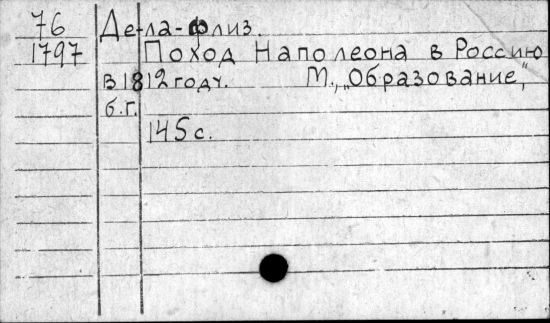 76 Де-ла-Флиз.
1797 Поход Наполеона в Россию
в 1812 году. М., „Образование",
б.г.
145 с.